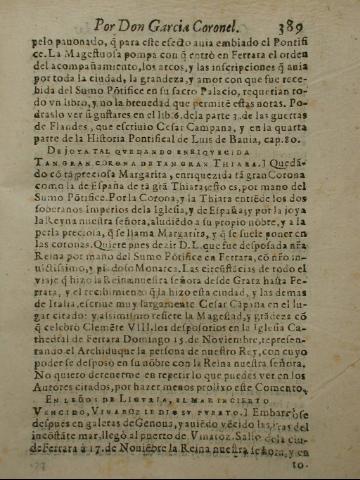 Por Don Garcia Coronel. 389
pelo pauonado, q̃ para este efecto auia embiado el Pontifi
ce. La Magestuosa pompa con q̃ entrò en Ferrara el orden
del acompañamiento, los arcos, y las inscripciones q̃ auia
por toda la ciudad, la grandeza, y amor con que fue rece-
bida del Sumo Põtifice en su sacro Palacio, requerian to-
do vn libro, y no la breuedad que permitẽ estas notas. Po-
draslo ver si gustares en el lib. 6. de la parte 3. de las guerras
de Flandes, que escriuio Cesar Campana, y en la quarta
parte de la Historia Pontifical de Luis de Bauia, cap. 80.
DE JOYA TAL QVEDANDO ENRIQVECIDA
TAN GRAN CORONA DE TAN GRAN THIARA.] Quedã-
do cõ tã preciosa Margarita, enriquezida tã gran Corona
como la de España de tã grã Thiara, esto es, por mano del
Sumo Põtifice. Por la Corona, y la Thiara entiẽde los dos
soberanos imperios de la Iglesia, y de España, y por la joya
la Reyna nuestra señora, aludiẽdo a su propio nõbre, y a la
perla preciosa, q̃ se llama Margarita, y q̃ se suele poner en
las coronas. Quiere pues dezir D. L. que fue desposada nr̃a
Reina por mano del Sumo Põtifice en Ferrara, cõ nr̃o in-
uictissimo, y piadoso Monarca. Las circũstãcias de todo el
viaje q̃ hizo la Reina nuestra señora desde Gratz hasta Fe-
rrara, y el recibimiento q̃ la hizo esta ciudad, y las demas
de Italia, escriue muy largamente Cesar Cãpana en el lu-
gar citado: y assimismo refiere la Magestad, y grãdeza cõ
q̃ celebrò Clemẽte VIII. los desposorios en la Iglesia Ca-
thedral de Ferrara Domingo 15. de Nouiembre, represen-
tando el Archiduque la persona de nuestro Rey, con cuyo
poder se desposò en su nõbre con la Reina nuestra señora.
No quiero detenerme en repetir lo que puedes ver en los
Autores citados, por hazer menos prolixo este Comento.
EN LEÑOS DE LIGVRIA, EL MAR INCIERTO
VENCIDO, VINAROZ LE DIO SV PVERTO.] Embarcòse
despues en galeras de Genoua, y auiẽdo vẽcido las iras del
incõstãte mar, llegò al puerto de Vinaroz. Saliò de la ciu-
de Ferrara à 17. de Nouiẽbre la Reina nuestra señora, y en
10.